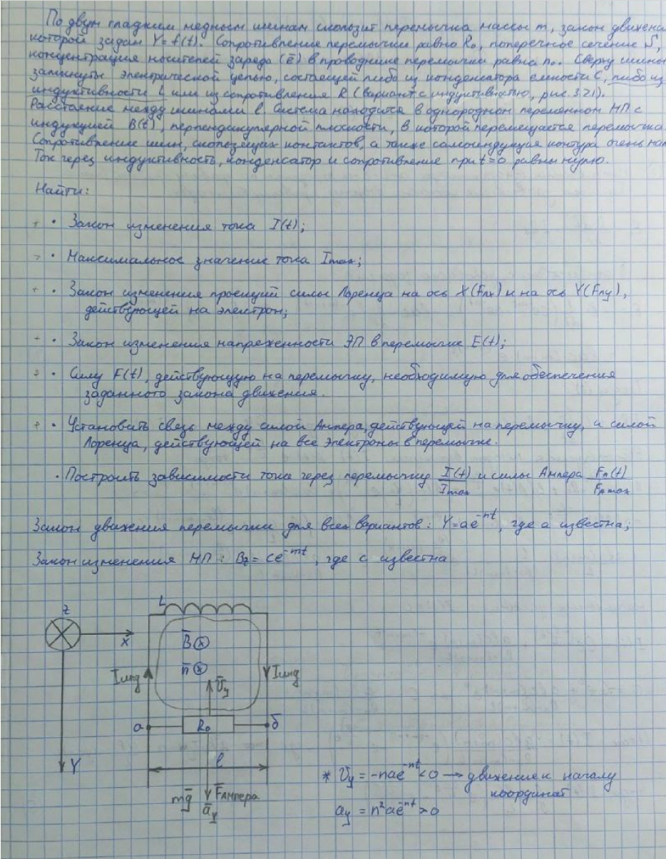 По двум гладким медным шинам скользит перемычка массы m, закон движения
которой задан Y=f(t). Сопротивление перемычки равно R₀, поперечное сечение S,
концентрация носителей заряда (ē) в проводнике перемычки равна n₀. Сверху шины
замкнуты электрической цепью, состоящей либо из конденсатора ёмкости C, либо из
индуктивности L или из сопротивления R (Вариант с индуктивностью, рис 3.2.1).
Расстояние между шинами l. Система находится в однородном переменном МП с
индукцией B(t), перпендикулярной плоскости, в которой перемещается перемычка.
Сопротивление шин, скользящих контактов, а также самоиндукция контура очень мал
Ток через индуктивность, конденсатор и сопротивление при t=0 равны нулю.
Найти:
• Закон изменения тока I(t);
• Максимальное значение тока Imax;
• Закон изменения проекций силы Лоренца на ось X(Fлx) и на ось Y(Fлy),
действующей на электрон;
• Закон изменения напряженности ЭП в перемычке E(t);
• Силу F(t), действующую на перемычку, необходимую для обеспечения
заданного закона движения.
• Установить связь между силой Ампера, действующей на перемычку, и силой
Лоренца, действующей на все электроны в перемычке.
• Построить зависимости тока через перемычку I(t)/Imax и силы Ампера Fл(t)/Fлmax
Закон движения перемычки для всех вариантов: Y=ae^-nt, где a известна;
Закон изменения МП: Bz=ce^-mt, где c известна
z
L
x
B̄
n̄
Iинд
Iинд
ῡy
a
R₀
б
l
Y
mḡ
F̄Ампера
āy
* ῡy = -nae^-nt < 0 → движение к началу
координат
ay = n²ae^-nt > 0